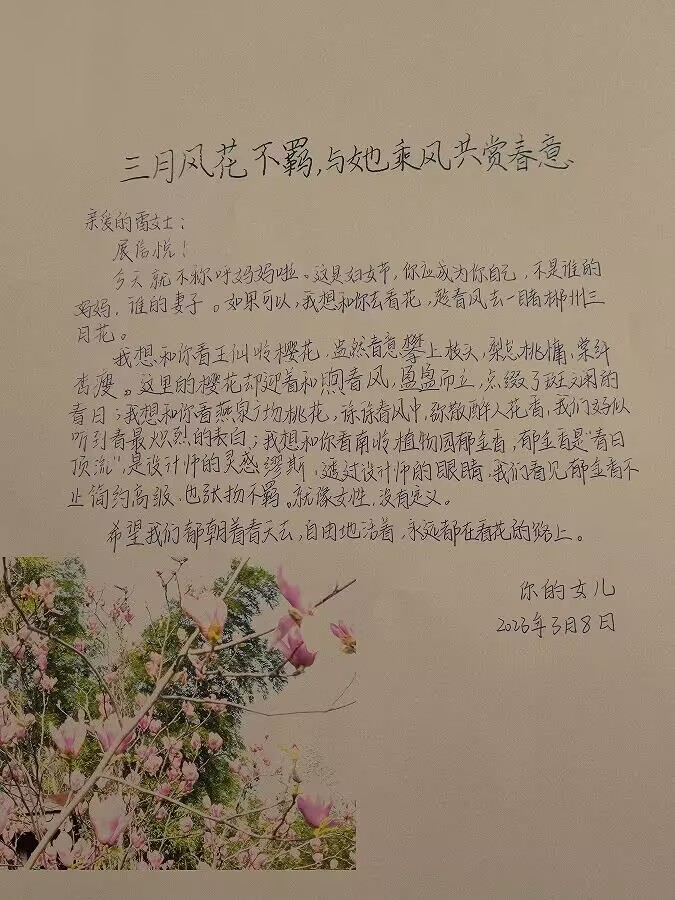 三月风花不羁,与她乘风共赏春意
亲爱的雷女士:
展信悦!
今天就不称呼妈妈啦。这是妇女节,你应成为你自己,不是谁的
妈妈,谁的妻子。如果可以,我想和你去看花,趁春风去一睹郴州三
月花。
我想和你看王仙岭樱花,盎然春意攀上枝头,梨怠桃慵,棠纤
杏瘦。这里的樱花却迎着和煦春风,盈盈而立,点缀了斑斓的
春日;我想和你看燕泉广场桃花,徐徐春风中,弥散醉人花香,我们好似
听到春最炽烈的表白;我想和你看南岭植物园郁金香,郁金香是"春日
顶流",是设计师的灵感缪斯,透过设计师的眼睛,我们看见郁金香不
止简约高级,也张扬不羁。就像女性,没有定义。
希望我们都朝着春天去,自由地活着,永远都在看花的路上。
你的女儿
2023年3月8日